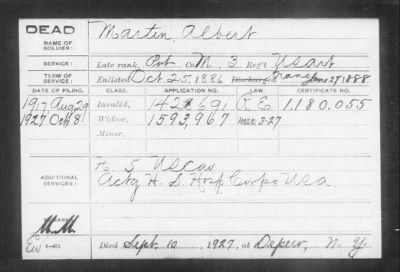 DEAD
NAME OF SOLDIER:
Martin, Albert
SERVICE: Late rank, Pvt Co. M. 3 Reg't US Art
TERM OF SERVICE: Enlisted Oct. 25, 1886 Discharged Trans June 27 1888
DATE OF FILING. CLASS. APPLICATION NO. LAW. CERTIFICATE NO.
1917 Aug 29 Invalid, 1421691 R.E. 1.180.055
1927 Oct 8 Widow, 1593,967 Mar. 3-27
Minor,
ADDITIONAL SERVICES:
5 US Cav
Actg H. S. Hosp. Corps USA
6-431
Died Sept. 10, 1927, at Depew, N. Y.